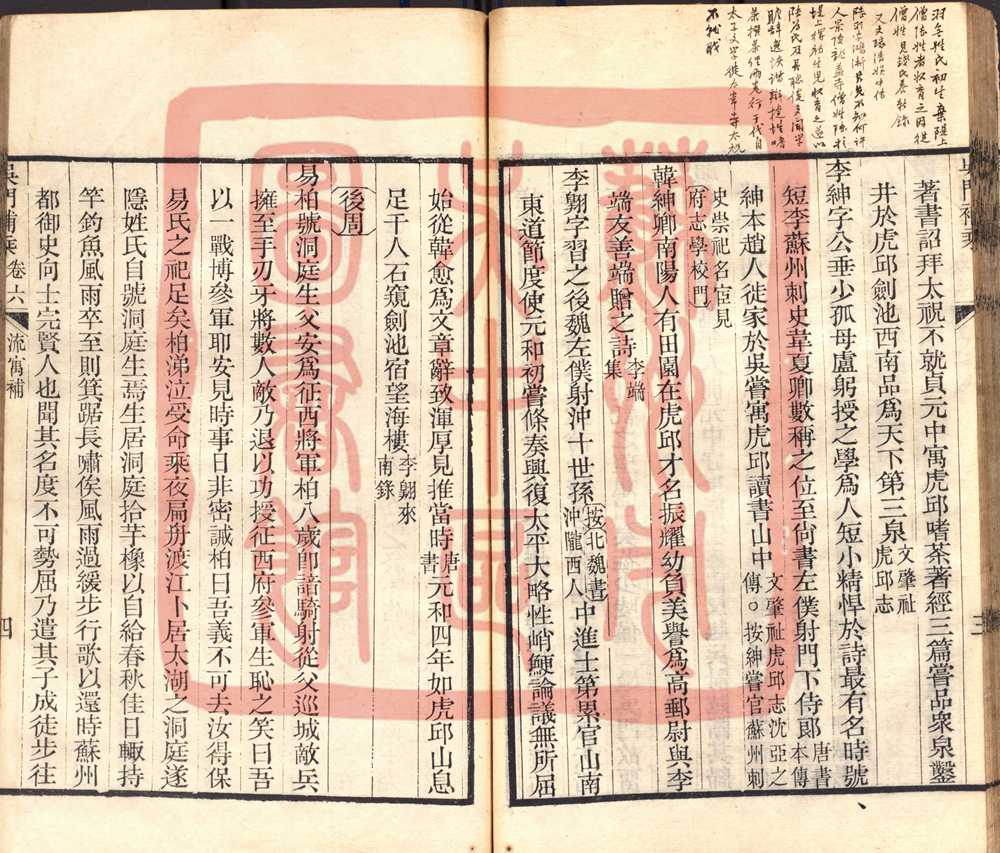 羽冬姓氏初生棄隄上
僧陸姓者收育之因從
僧姓見
又
陸羽字鴻漸
人景陵
堤上得初生兒收育之遂以
陸為氏及長聰俊多聞學
贍辭逸詼諧辯捷性嗜
茶撰茶經兩卷行于代自
太子文學徙太常寺太祝
不就職
吳門補乘
著書詔拜太祝不就貞元中寓虎邱嗜茶著經三篇嘗品衆泉鑿
井於虎邱劍池西南品爲天下第三泉文肇祉虎邱志
李紳字公垂少孤母盧躬授之學爲人短小精悍於詩最有名時號
短李蘇州刺史韋夏卿數稱之位至尙書左僕射門下侍郞唐書本傳
紳本趙人徙家於吳嘗寓虎邱讀書山中文肇祉虎邱志沈亞之傳○按紳嘗官蘇州刺
史崇祀名宦見府志學校門
韓紳卿南陽人有田園在虎邱才名振耀幼負美譽爲高郵尉與李
端友善端贈之詩李端集
李翺字習之後魏左僕射沖十世孫按北魏書沖隴西人中進士第累官山南
東道節度使元和初嘗條奏興復太平大略性峭鯁論議無所屈
三
始從韓愈爲文章辭致渾厚見推當時唐書元和四年如虎邱山息
足千人石窺劍池宿望海樓李翺來南錄
後周
易柏號洞庭生父安爲征西將軍柏八歲卽諳騎射從父巡城敵兵
擁至手刃牙將數人敵乃退以功授征西府參軍生恥之笑曰吾
以一戰博參軍耶安見時事日非密誡柏曰吾義不可去汝得保
易氏之祀足矣柏涕泣受命乘夜扁舟渡江卜居太湖之洞庭遂
隱姓氏自號洞庭生焉生居洞庭拾芋橡以自給春秋佳日輒持
竿釣魚風雨卒至則箕踞長嘯俟風雨過緩步行歌以還時蘇州
都御史向士完賢人也聞其名度不可勢屈乃遣其子成徒步往
吳門補乘 卷六 流寓補 四